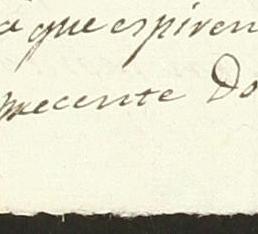 a que espiren
mecente Do